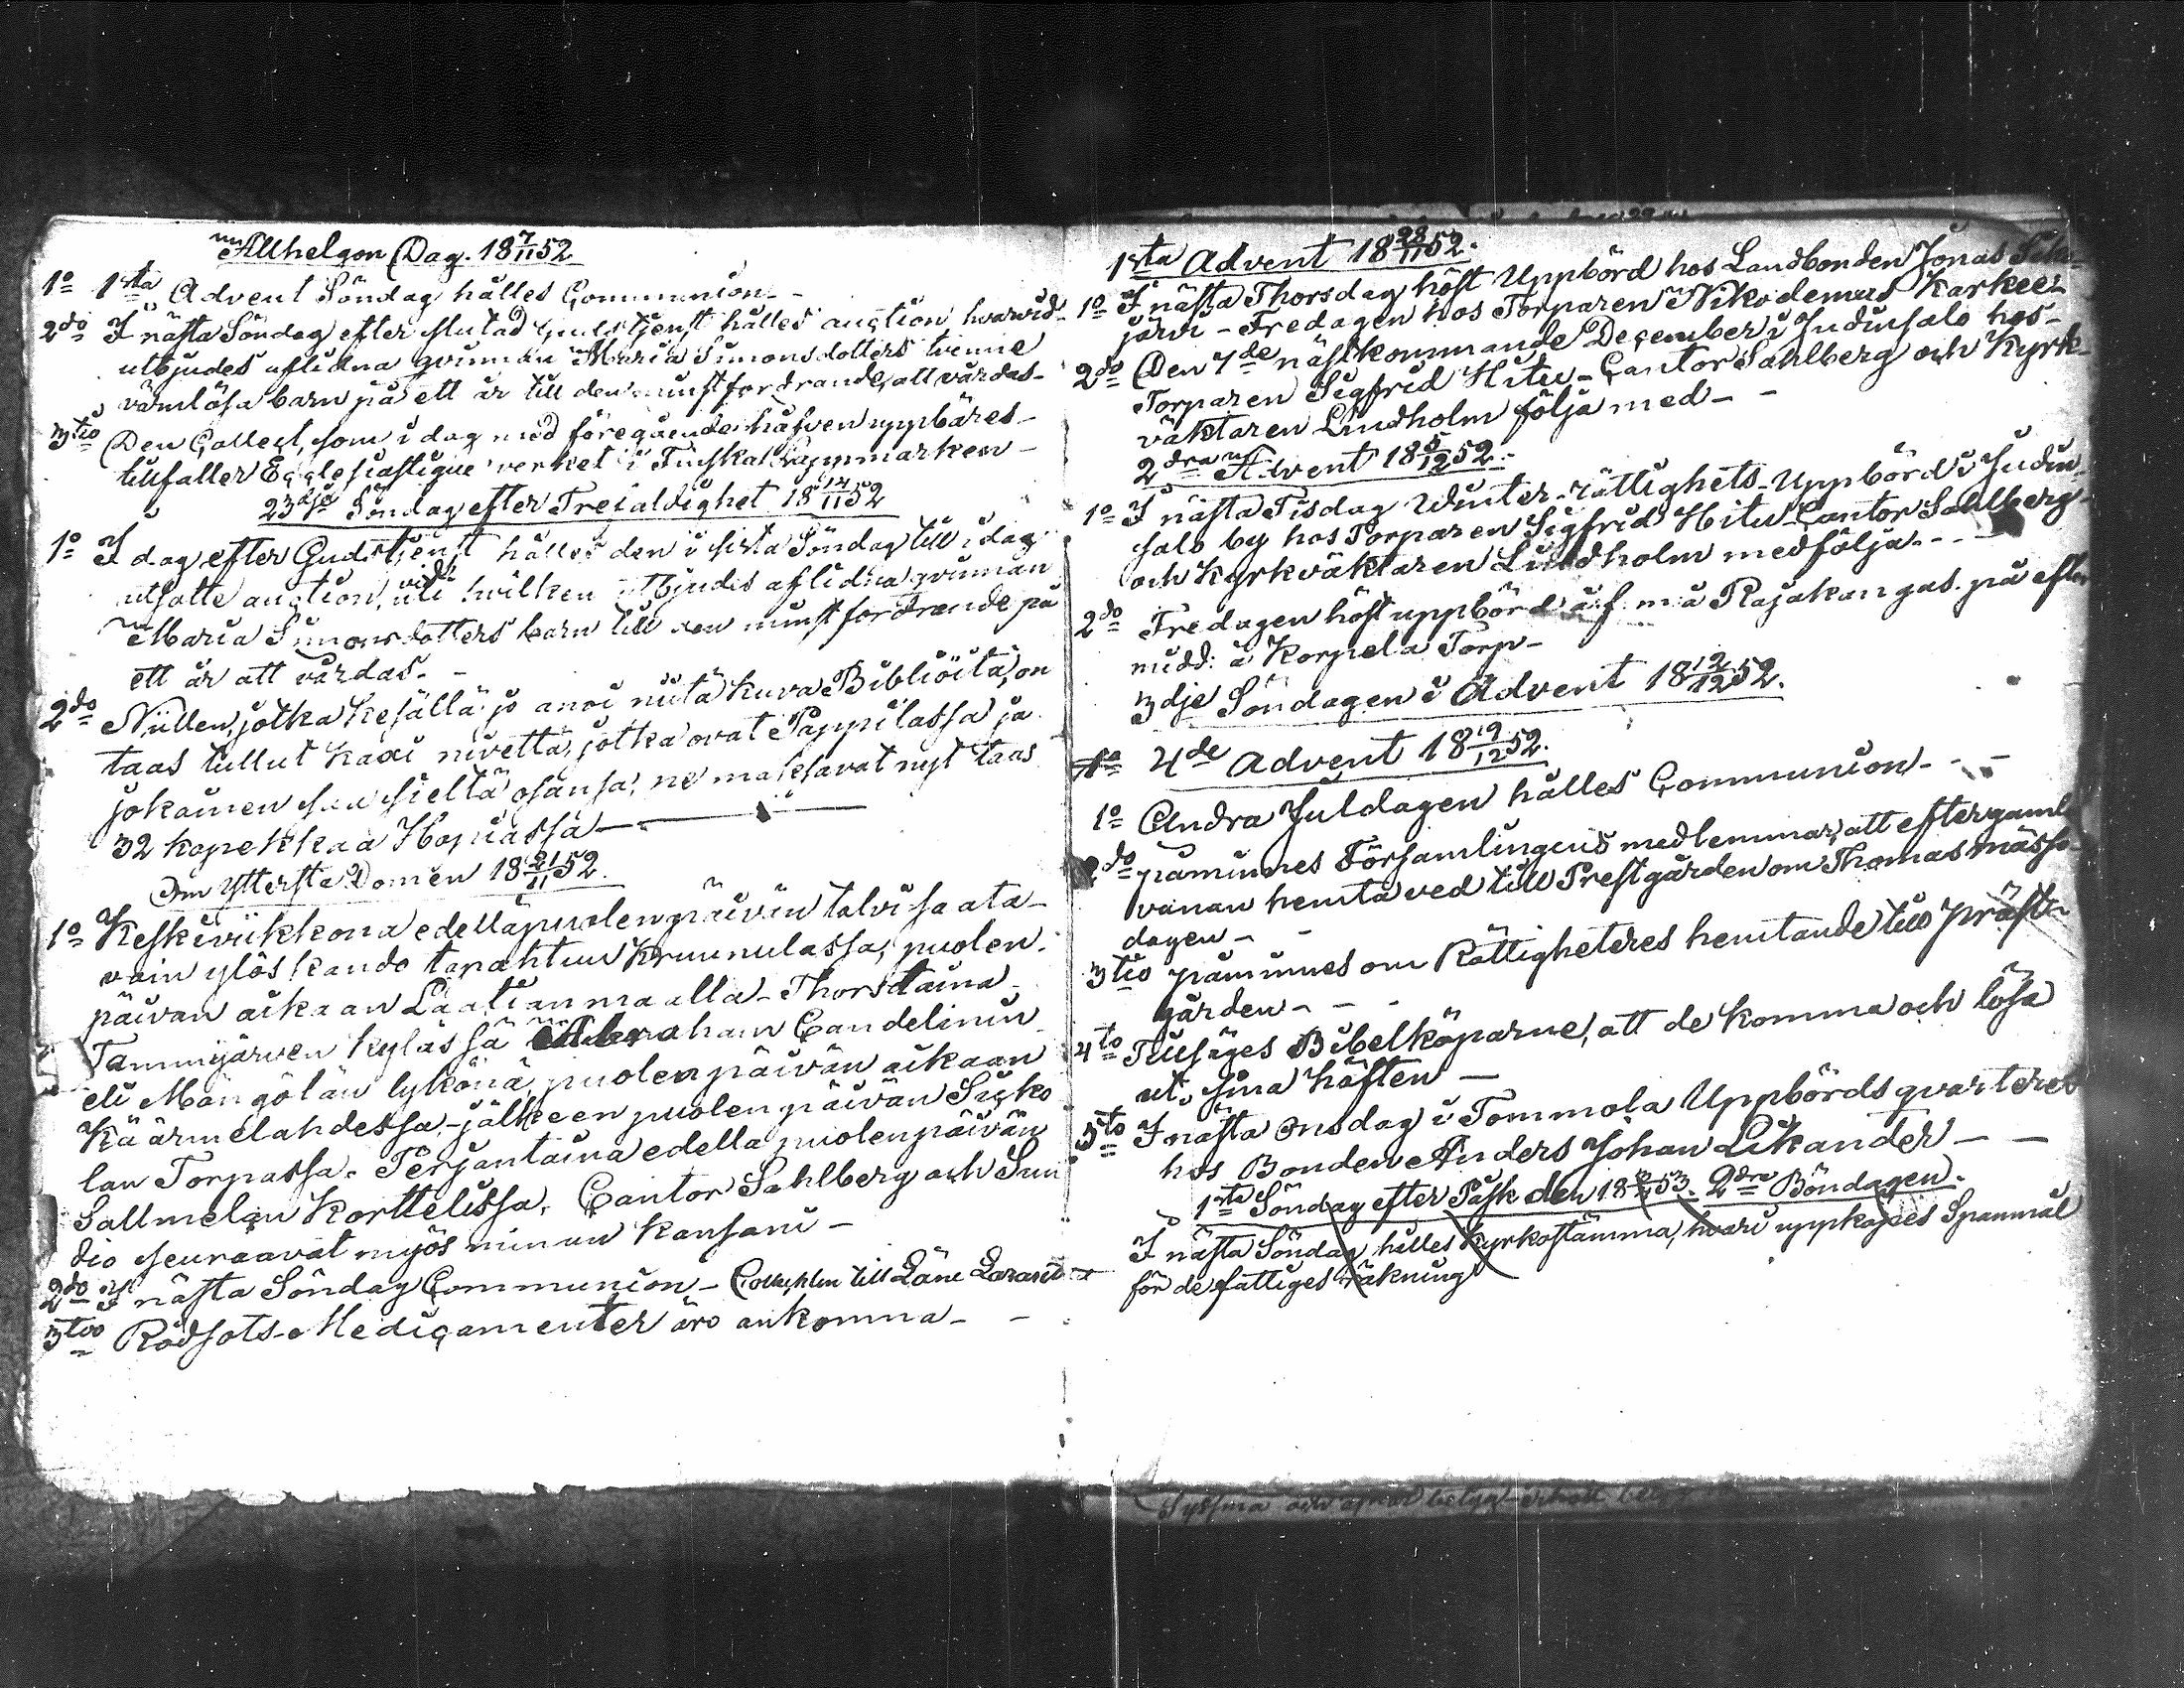 Allhelgon Dag. 18 7/11 52
1o 1sta Advent Söndag hålles Communion -
2do I nästa Söndag efter slutad gudstjenst hålles auction hvarvid
utbjudes aflidna qvinnan Maria Simonsdotters tvenne
värnlösa barn på ett år till den minst fordrande, att vårdas -
3tio Den Collect, som i dag med föregående håfven uppbäres -
tillfaller Ecclesiastique verket i Finska Lappmarken -
23dje Söndag efter Trefaldighet 18 14/11 52
1o I dag efter Gudstjenst hålles den i sista Söndag till i dag
utsatte auction, vid hvilken utbjudes aflidna qvinnan
Maria Simonsdotters barn till den minst fordrande på
ett år att vårdas. -
2do Niillen, jotka kesällä jo anoi niitä kuva Bibliöitä, on
taas tullut kaxi nivettä, jotka ovat Pappilassa ja
jokainen saa sieltä osansa; ne maksavat nyt taas
32 kopekkaa Hopiassa -
Om Yttersta Domen 18 21/11 52.
1o Keskiviikkona edelläpuolenpäivän talvisaata-
vain ylöskando tapahtuu Kruunulassa, puolen-
päivän aikaan Laatianmaalla - Thorstaina
Tammijärven kylässä Abraham Candelinin
eli Mängölän lykönä, puolenpäivän aikaan
Käärmelahdessa, - jälkeen puolenpäivän Sicko
lan Torpassa. Perjantaina edellä puolenpäivän
Sallmelan Korttelissa, Cantor Sahlberg och Sun
dio seuraavat myös minun kansani -
2do I nästa Söndag Communion - Collecten till Läne Lazaret
3tio Rödsots-Medicamenter äro ankomna -
1sta Advent 18 28/11 52.
1o I nästa Thorsdag höst Uppbörd hos Landbonden Jonas
järvi - Fredagen hos Torparen Nikodemus Karkee
2do Den 7de nästkommande December i Judinsalo hos
Torparen Sigfrid Hitu - Cantor Sahlberg och Kyrk-
väktaren Lindholm följa med - -
2dra Advent 18 5/12 52.
1o I nästa Tisdag Winter-rättighets-Uppbörd i Judin-
salo by hos Torparen Sigfrid Hitu - Cantor Sahlberg
och Kyrkväktaren Lindholm medfölja - - -
2do Fredagen höst uppbörd å f. m. å Rajakangas. på efter
midd: å Korpela Torp -
3dje Söndagen i Advent 18 12/12 52.
1o 4de Advent 18 19/12 52.
1o Andra Juldagen hålles Communion - -
2do påminnes Församlingens medlemmar, att efter gamla
vanan hemta ved till Prestgården om Thomasmässo-
dagen - -
3tio påminnes om Rättigheters hemtande till präst-
gården - - -
4to Tillsäges Bibelköparne, att de komma och lösa
ut sina häften -
5to I nästa onsdag i Tommola Uppbördsqvarteret
hos Bonden Anders Johan Likander - -
1sta Söndag efter Påsk den 18 3/4 53. 2dra Böndagen.
I nästa Söndag hålles Kyrkostämma, hvari uppköpes Spannmål
för de fattiges räkning